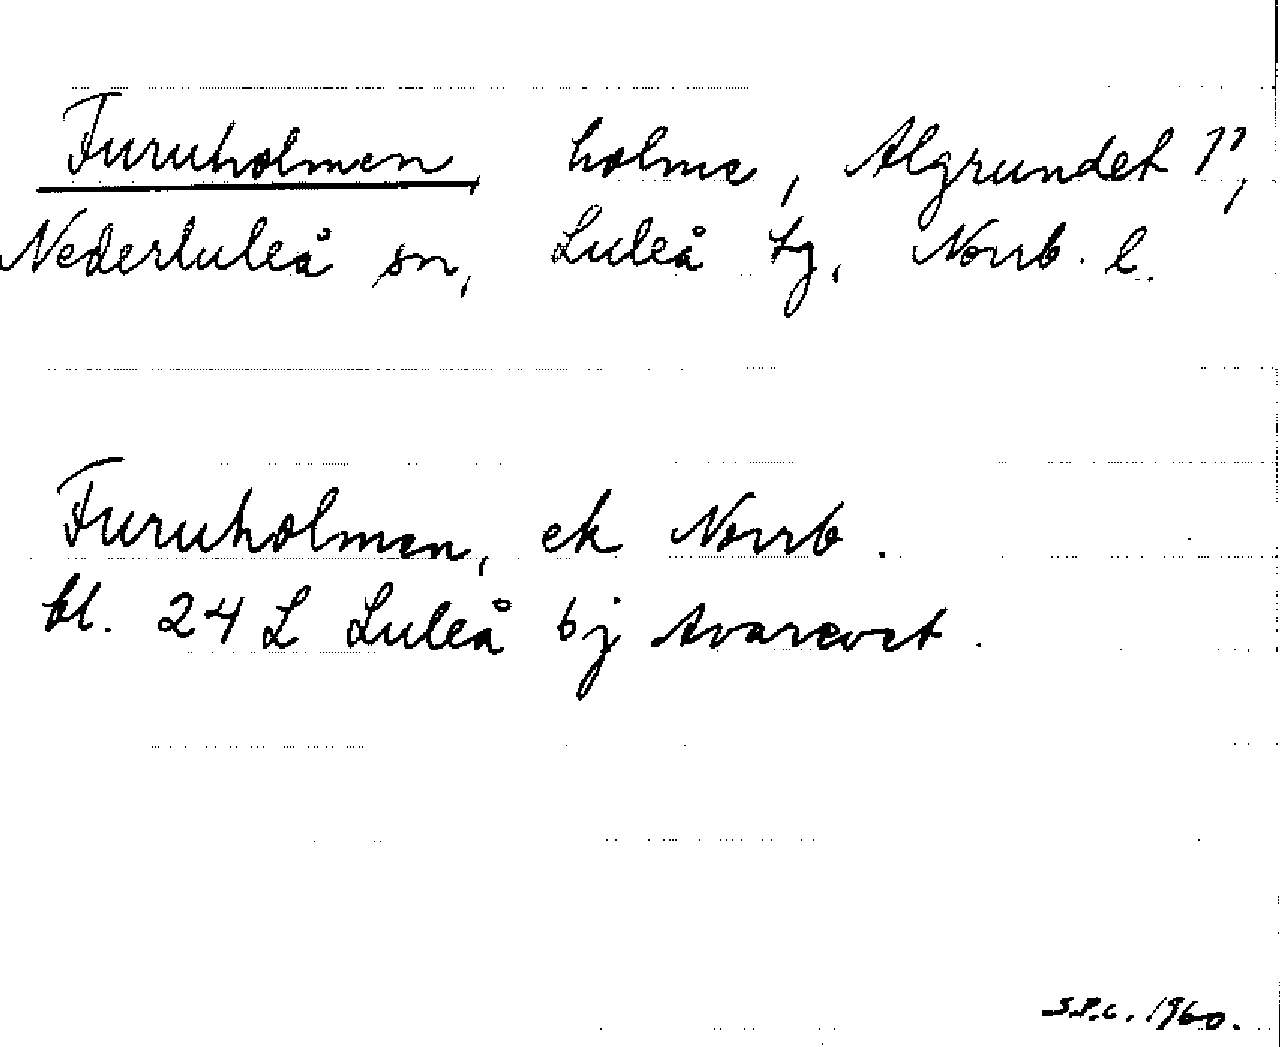 Furuholmen, holme, Algrundet 17,
Nederluleå sn, Luleå tg, Norrb. l.
Furuholmen, ek Norrb.
bl. 24 L Luleå bj Avarevet.
S.P.C. 1960.